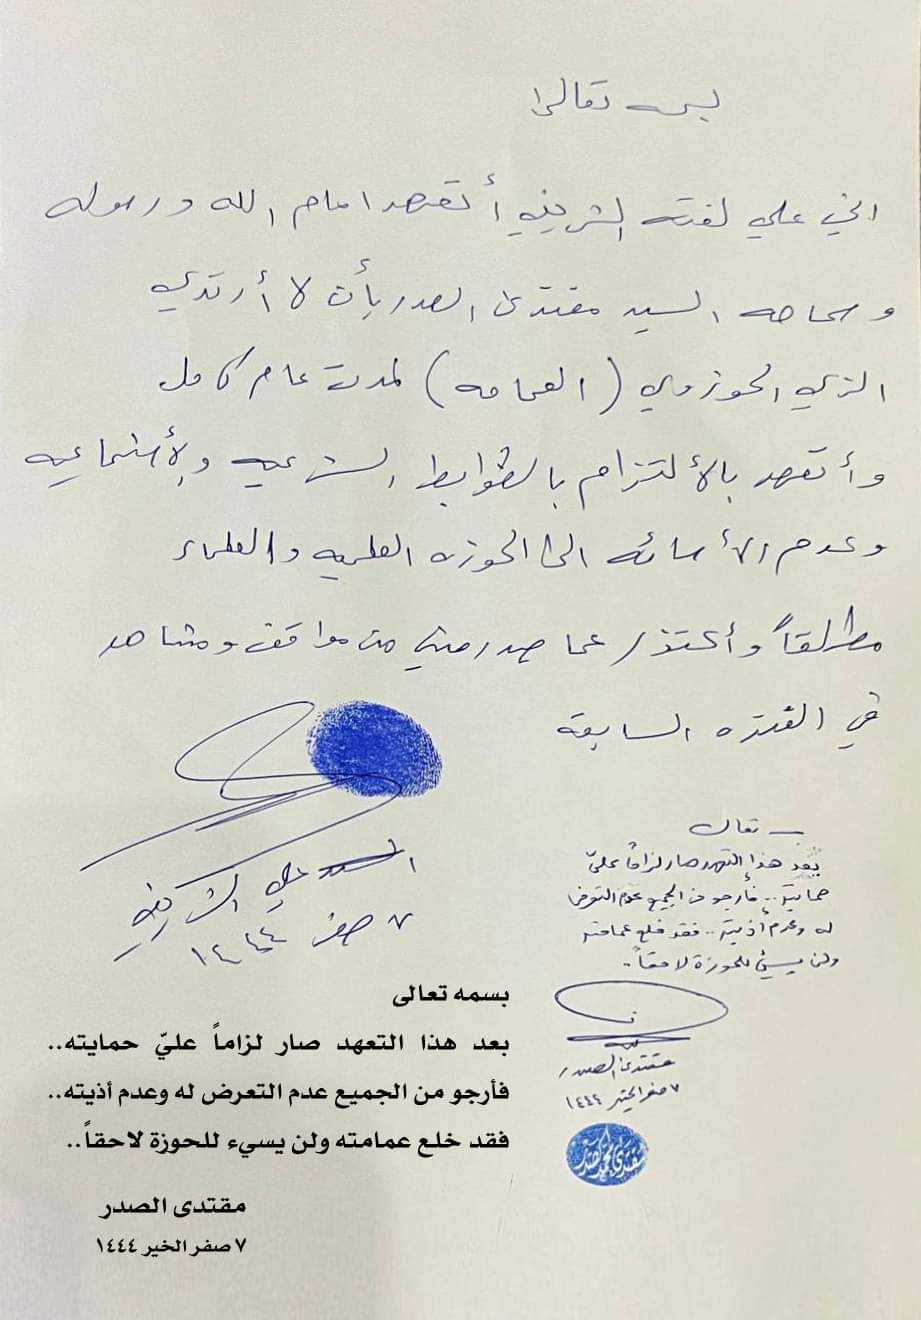 بسمه تعالى
اني علي لفته الشريفي أتعهد امام الله ورسوله
وسماحه السيد مقتدى الصدر بأن لا أرتدي
الزي الحوزوي (العمامه) لمدت عام كامل
وأتعهد بالألتزام بالظوابط الشرعيه والأجتماعيه
وعدم الأسائه الى الحوزه العلميه والعلماء
مطلقاً وأعتذر عما صدر مني من مواقف ومشاهد
في الفتره السابقة
علي الشريفي
٧ صفر ١٤٤٤
بسمه تعالى
بعد هذا التعهد صار لزاماً عليّ
حمايته.. فأرجو من الجميع عدم التعرض
له وعدم أذيته.. فقد خلع عمامته
ولن يسيء للحوزة لاحقاً..
مقتدى الصدر
٧ صفر الخير ١٤٤٤
مقتدى محمد الصدر
بسمه تعالى
بعد هذا التعهد صار لزاماً عليّ حمايته..
فأرجو من الجميع عدم التعرض له وعدم أذيته..
فقد خلع عمامته ولن يسيء للحوزة لاحقاً..
مقتدى الصدر
٧ صفر الخير ١٤٤٤